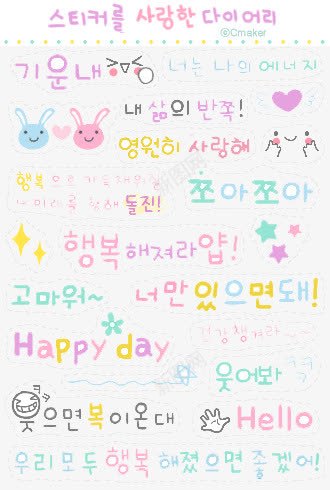 스티커를 사랑한 다이어리
©Cmaker
기운내
너는 나의 에너지
내 삶의 반쪽!
영원히 사랑해
행복으로 가득채워질
너 미래를 향해 돌진!
쪼아쪼아
행복해져라얍!
고마워~
너만있으면돼!
Happy day
건강챙겨라~
웃어봐 ㅋㅋ
ㅋㅋ
웃으면복이온대
Hello
우리모두 행복해졌으면 좋겠어!